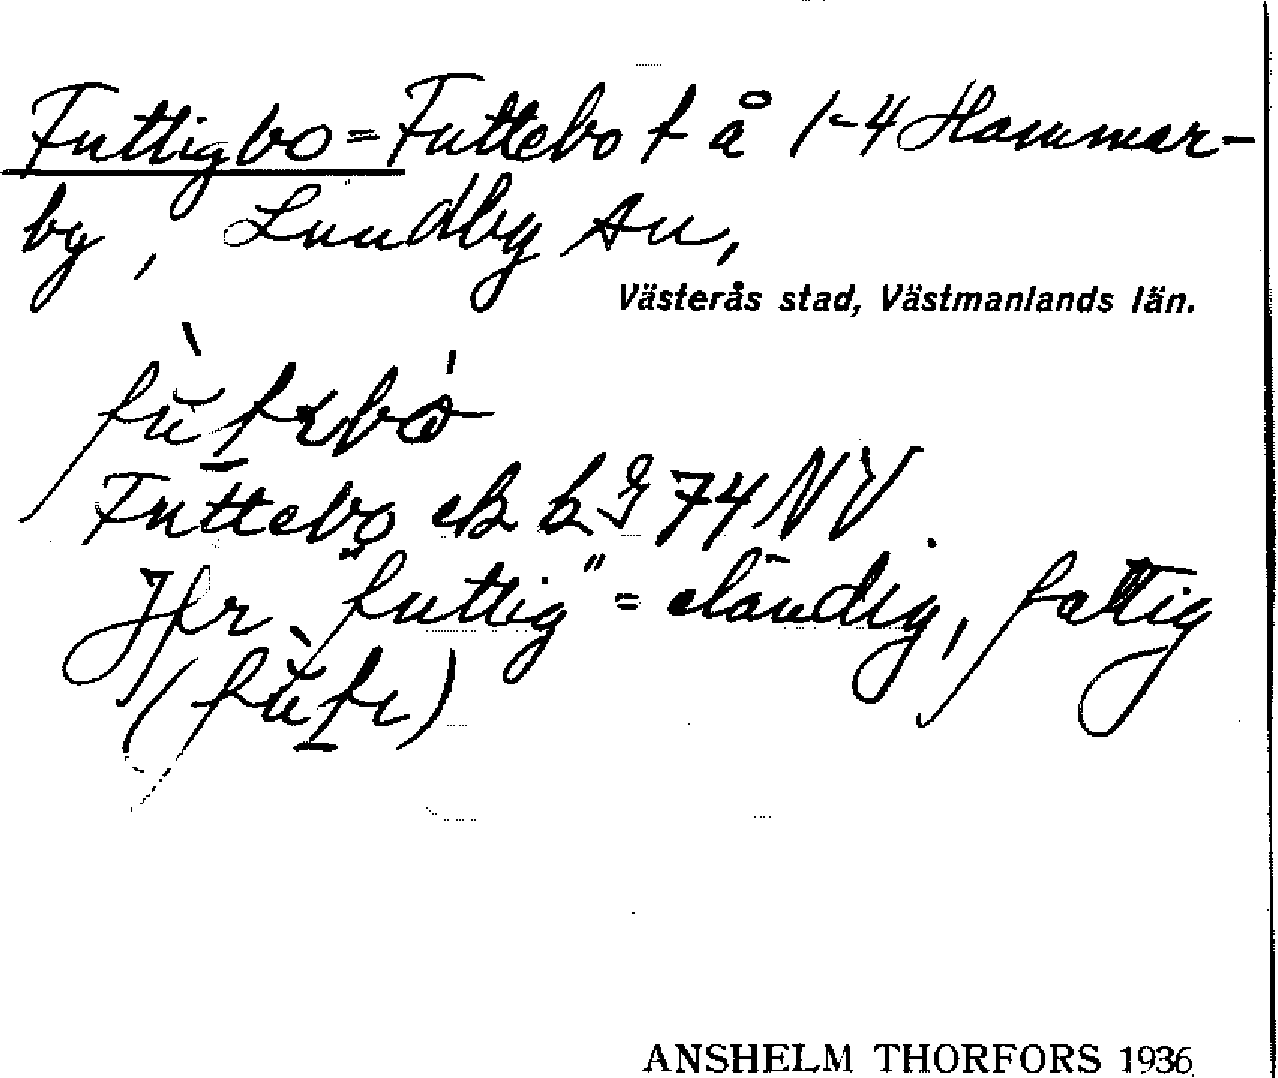 Futtigbo = Futtebo t å 1-4 Hammar-
by, Lundby sn,
Västerås stad, Västmanlands län.
Futtebo ek bl 74 NV.
Jfr "futtig" = eländig, fattig
ANSHELM THORFORS 1936